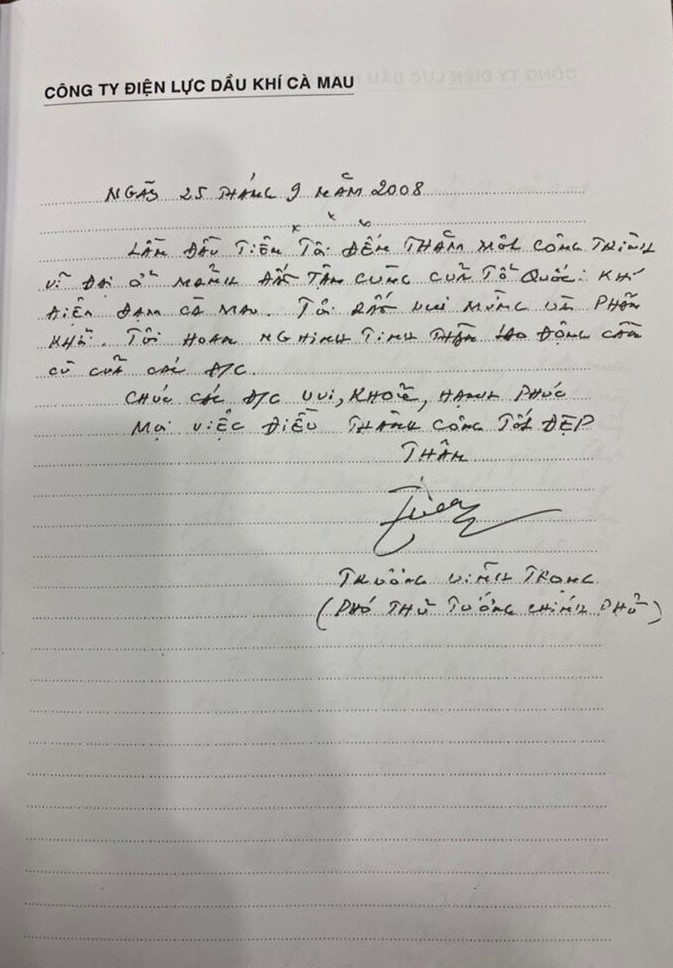 CÔNG TY ĐIỆN LỰC DẦU KHÍ CÀ MAU
NGÀY 25 THÁNG 9 NĂM 2008
LẦN ĐẦU TIÊN TÔI ĐẾN THĂM MỘT CÔNG TRÌNH
VĨ ĐẠI Ở MẢNH ĐẤT TẬN CÙNG CỦA TỔ QUỐC: KHÍ
ĐIỆN ĐẠM CÀ MAU. TÔI RẤT VUI MỪNG VÀ PHẤN
KHỞI. TÔI HOAN NGHINH TINH THẦN LAO ĐỘNG CẦN
CÙ CỦA CÁC Đ/C.
CHÚC CÁC Đ/C VUI, KHOẺ, HẠNH PHÚC
MỌI VIỆC ĐIỀU THÀNH CÔNG TỐT ĐẸP
THÂN
TRƯƠNG VĨNH TRỌNG
(PHÓ THỦ TƯỚNG CHÍNH PHỦ)